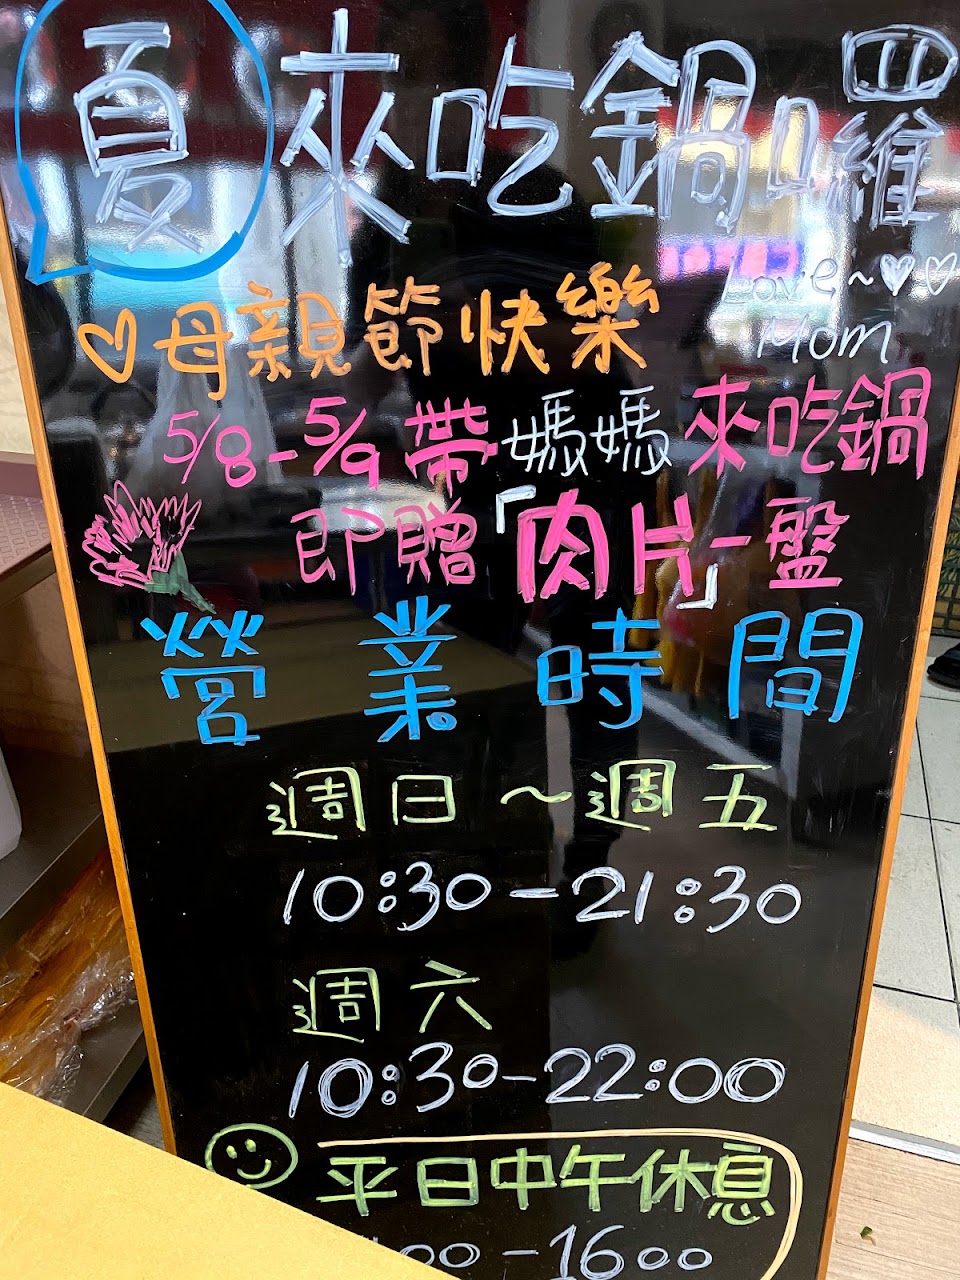 夏來吃鍋囉
♡母親節快樂
Love~♡♡
Mom
5/8-5/9帶媽媽來吃鍋
即贈「肉片」一盤
營業時間
週日~週五
10:30-21:30
週六
10:30-22:00
平日中午休息
00-1600